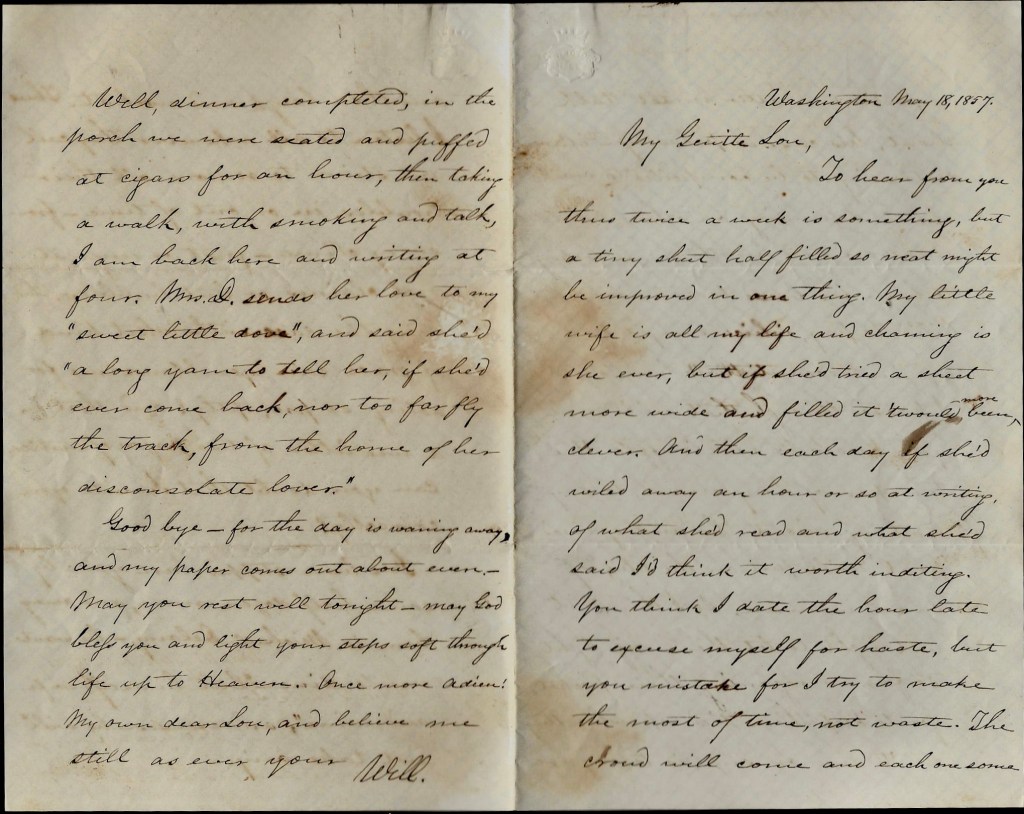 Washington May 18, 1857.
My Gentle Lou,
To hear from you
thus twice a week is something, but
a tiny sheet half filled so neat might
be improved in one thing. My little
wife is all my life and charming is
she ever, but if she'd tried a sheet
more wide and filled it 'twould been, more
clever. And then each day if she'd
wiled away an hour or so at writing,
of what she'd read and what she'd
said I'd think it worth inditing.
You think I date the hour late
to excuse myself for haste, but
you mistake for I try to make
the most of time, not waste. The
crowd will come and each one some
Well, dinner completed, in the
porch we were seated and puffed
at cigars for an hour, then taking
a walk, with smoking and talk,
I am back here and writing at
four. Mrs. D. sends her love to my
"sweet little dove", and said she'd
"a long yarn to tell her, if she'd
ever come back, nor too far fly
the track, from the home of her
disconsolate lover."
Good bye – for the day is waning away,
and my paper comes out about even. –
May you rest well tonight – may God
bless you and light your steps soft through
life up to Heaven. Once more adieu!
My own dear Lou, and believe me
still as ever your
Will.